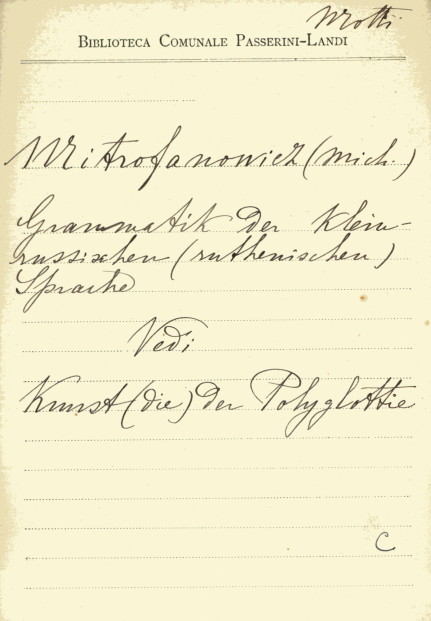 Motti
BIBLIOTECA COMUNALE PASSERINI-LANDI
Mitrofanowicz (Mich.)
Grammatik der Klein-
russischen (ruthenischen)
Sprache
Vedi
Kunst (die) der Polyglottie
C